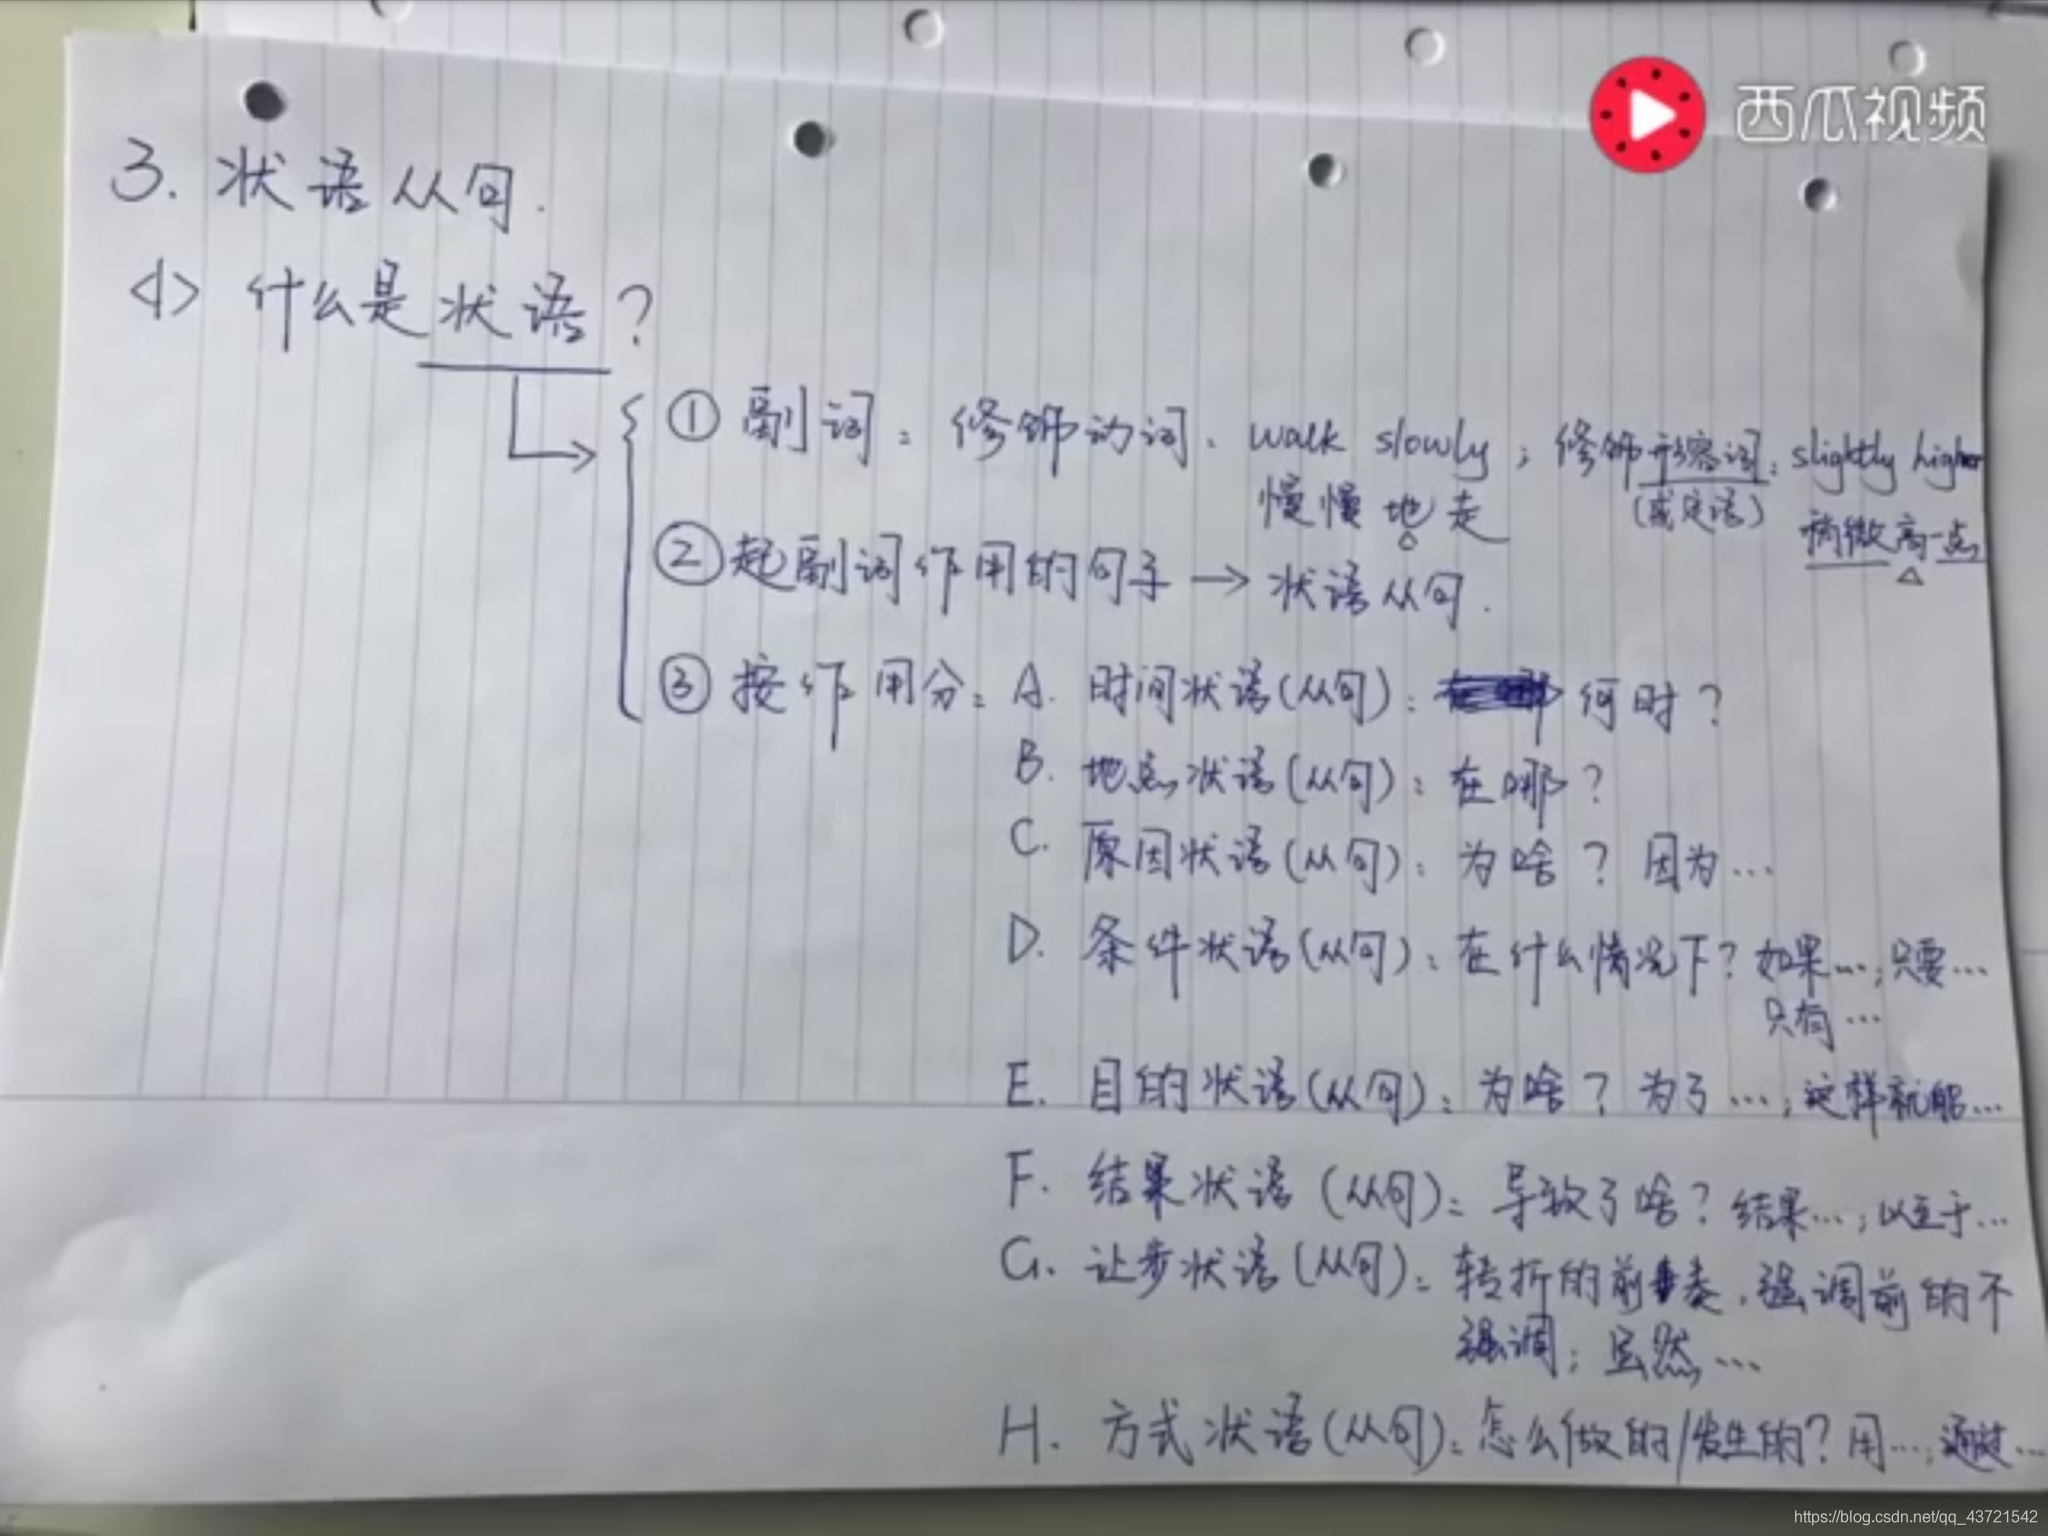 西瓜视频
3. 状语从句.
<1> 什么是状语?
① 副词: 修饰动词. walk slowly; 修饰形容词: slightly higher
慢慢地走 (或定语) 稍微高一点
② 起副词作用的句子 → 状语从句.
③ 按作用分: A. 时间状语(从句): 何时?
B. 地点状语(从句): 在哪?
C. 原因状语(从句): 为啥? 因为…
D. 条件状语(从句): 在什么情况下? 如果…; 只要…
只有…
E. 目的状语(从句): 为啥? 为了…; 这样就能…
F. 结果状语(从句): 导致了啥? 结果…; 以至于…
G. 让步状语(从句): 转折的前奏. 强调前的不
强调; 虽然…
H. 方式状语(从句): 怎么做的/发生的? 用…; 通过…
https://blog.csdn.net/qq_43721542